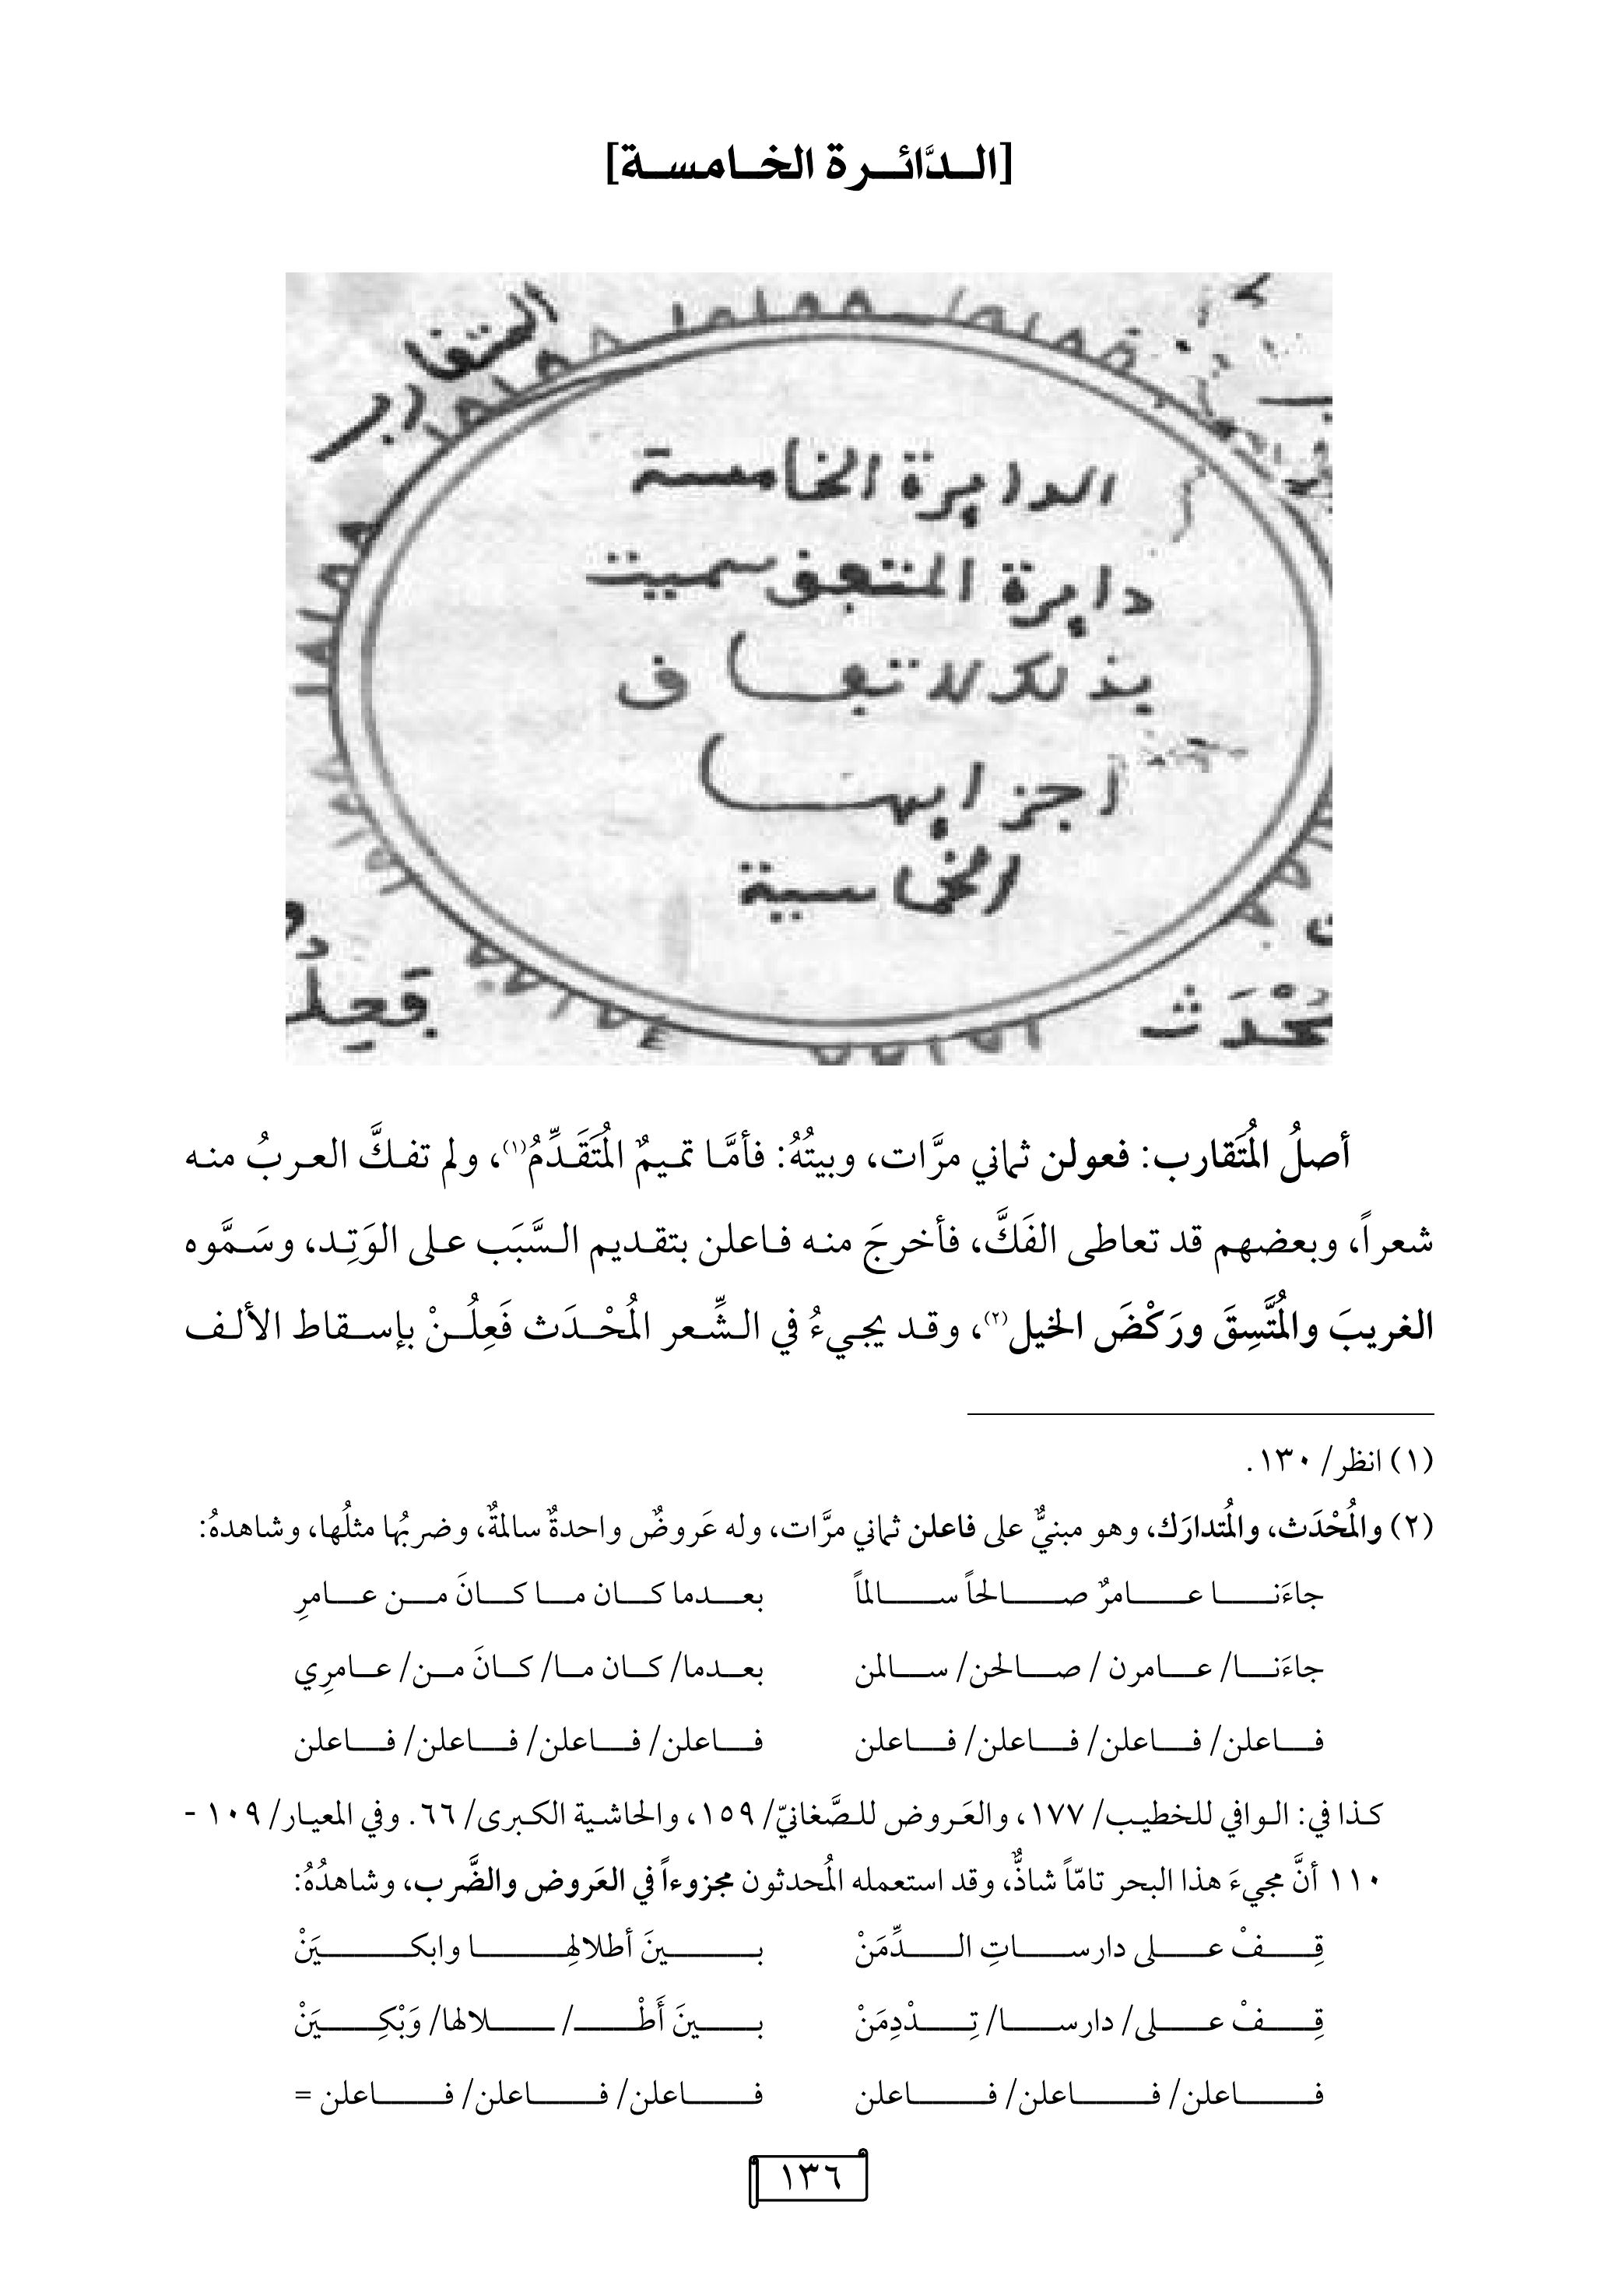 [الدَّائرة الخامسة]
المتقا
رب
الدايرة الخامسة
دايرة المتفق سميت
بذلك لاتفاق
اجزايها
الخماسية
فَعِلُن
أصلُ المُتَقارب: فعولن ثماني مرَّات، وبيتُهُ: فأمَّا تميمٌ المُتَقَدِّمُ(١)، ولم تفكَّ العربُ منه
شعراً، وبعضهم قد تعاطى الفَكَّ، فأخرجَ منه فاعلن بتقديم السَّبَب على الوَتِد، وسَمَّوه
الغريبَ والمُتَّسِقَ ورَكْضَ الخيل(٢)، وقد يجيءُ في الشِّعر المُحْدَث فَعِلُنْ بإسقاط الألف
(١) انظر/ ١٣٠.
(٢) والمُحْدَث، والمُتدارَك، وهو مبنيٌّ على فاعلن ثماني مرَّات، وله عَروضٌ واحدةٌ سالمةٌ، وضربُها مثلُها، وشاهدهُ:
جاءَنا عامرٌ صالحاً سالماً بعدما كان ما كانَ من عامرِ
جاءَنا/ عامرن / صالحن/ سالمن بعدما/ كان ما/ كانَ من/ عامرِي
فاعلن/ فاعلن/ فاعلن/ فاعلن فاعلن/ فاعلن/ فاعلن/ فاعلن
كذا في: الوافي للخطيب/ ١٧٧، والعَروض للصَّغانيّ/ ١٥٩، والحاشية الكبرى/ ٦٦. وفي المعيار/ ١٠٩ -
١١٠ أنَّ مجيءَ هذا البحر تامّاً شاذٌّ، وقد استعمله المُحدثون مجزوءاً في العَروض والضَّرب، وشاهدُهُ:
قِفْ على دارساتِ الدِّمَنْ بينَ أطلالِها وابكيَنْ
قِفْ على/ دارسا/ تِدْدِمَنْ بينَ أَطْـ/ ـلالها/ وَبْكِيَنْ
فاعلن/ فاعلن/ فاعلن فاعلن/ فاعلن/ فاعلن =
١٣٦